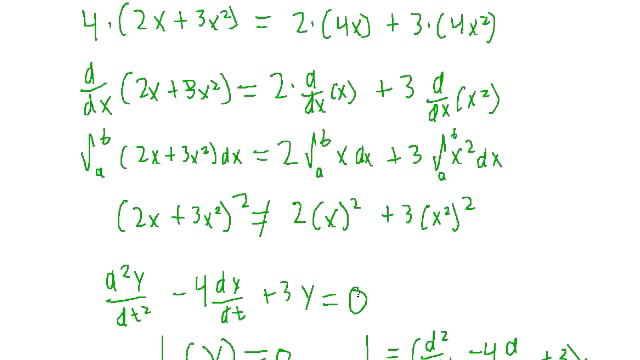 4·(2x+3x²) = 2·(4x) + 3·(4x²)
d/dx (2x+3x²) = 2·d/dx(x) + 3 d/dx(x²)
∫ₐᵇ (2x+3x²)dx = 2∫ₐᵇ x dx + 3∫ₐᵇ x² dx
(2x+3x²)² ≠ 2(x)² + 3(x²)²
d²Y/dt² − 4 dx/dt + 3Y = 0